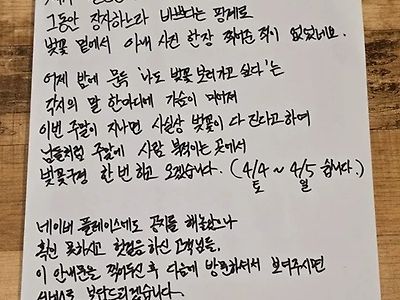 그동안 장사하느라 바쁘다는 핑계로
벚꽃 밑에서 아내 사진 한장 찍어준 적이 없었네요.
어제 밤에 문득 '나도 벚꽃 보러가고 싶다'는
각시의 말 한마디에 가슴이 미어져
이번 주말이 지나면 사실상 벚꽃이 다 진다고하여
남들처럼 주말에 사람 북적이는 곳에서
벚꽃구경 한 번 하고 오겠습니다. (4/4 ~ 4/5 쉽니다.)
토 일
네이버 플레이스에도 공지를 해놓았으나
확인 못하시고 헛걸음 하신 고객님들,
이 안내문을 찍어두신 후 다음에 방문하셔서 보여주시면
서비스로 보답드리겠습니다.